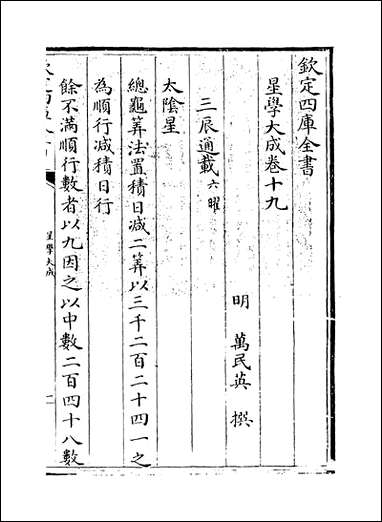 欽定四庫全書
星學大成卷十九
明 萬民英 撰
三辰通載六曜
太陰星
總龜筭法置積日減二筭以三千二百二十四一之
為順行減積日行
餘不滿順行數者以九因之以中數二百四十八數
星學大成
一